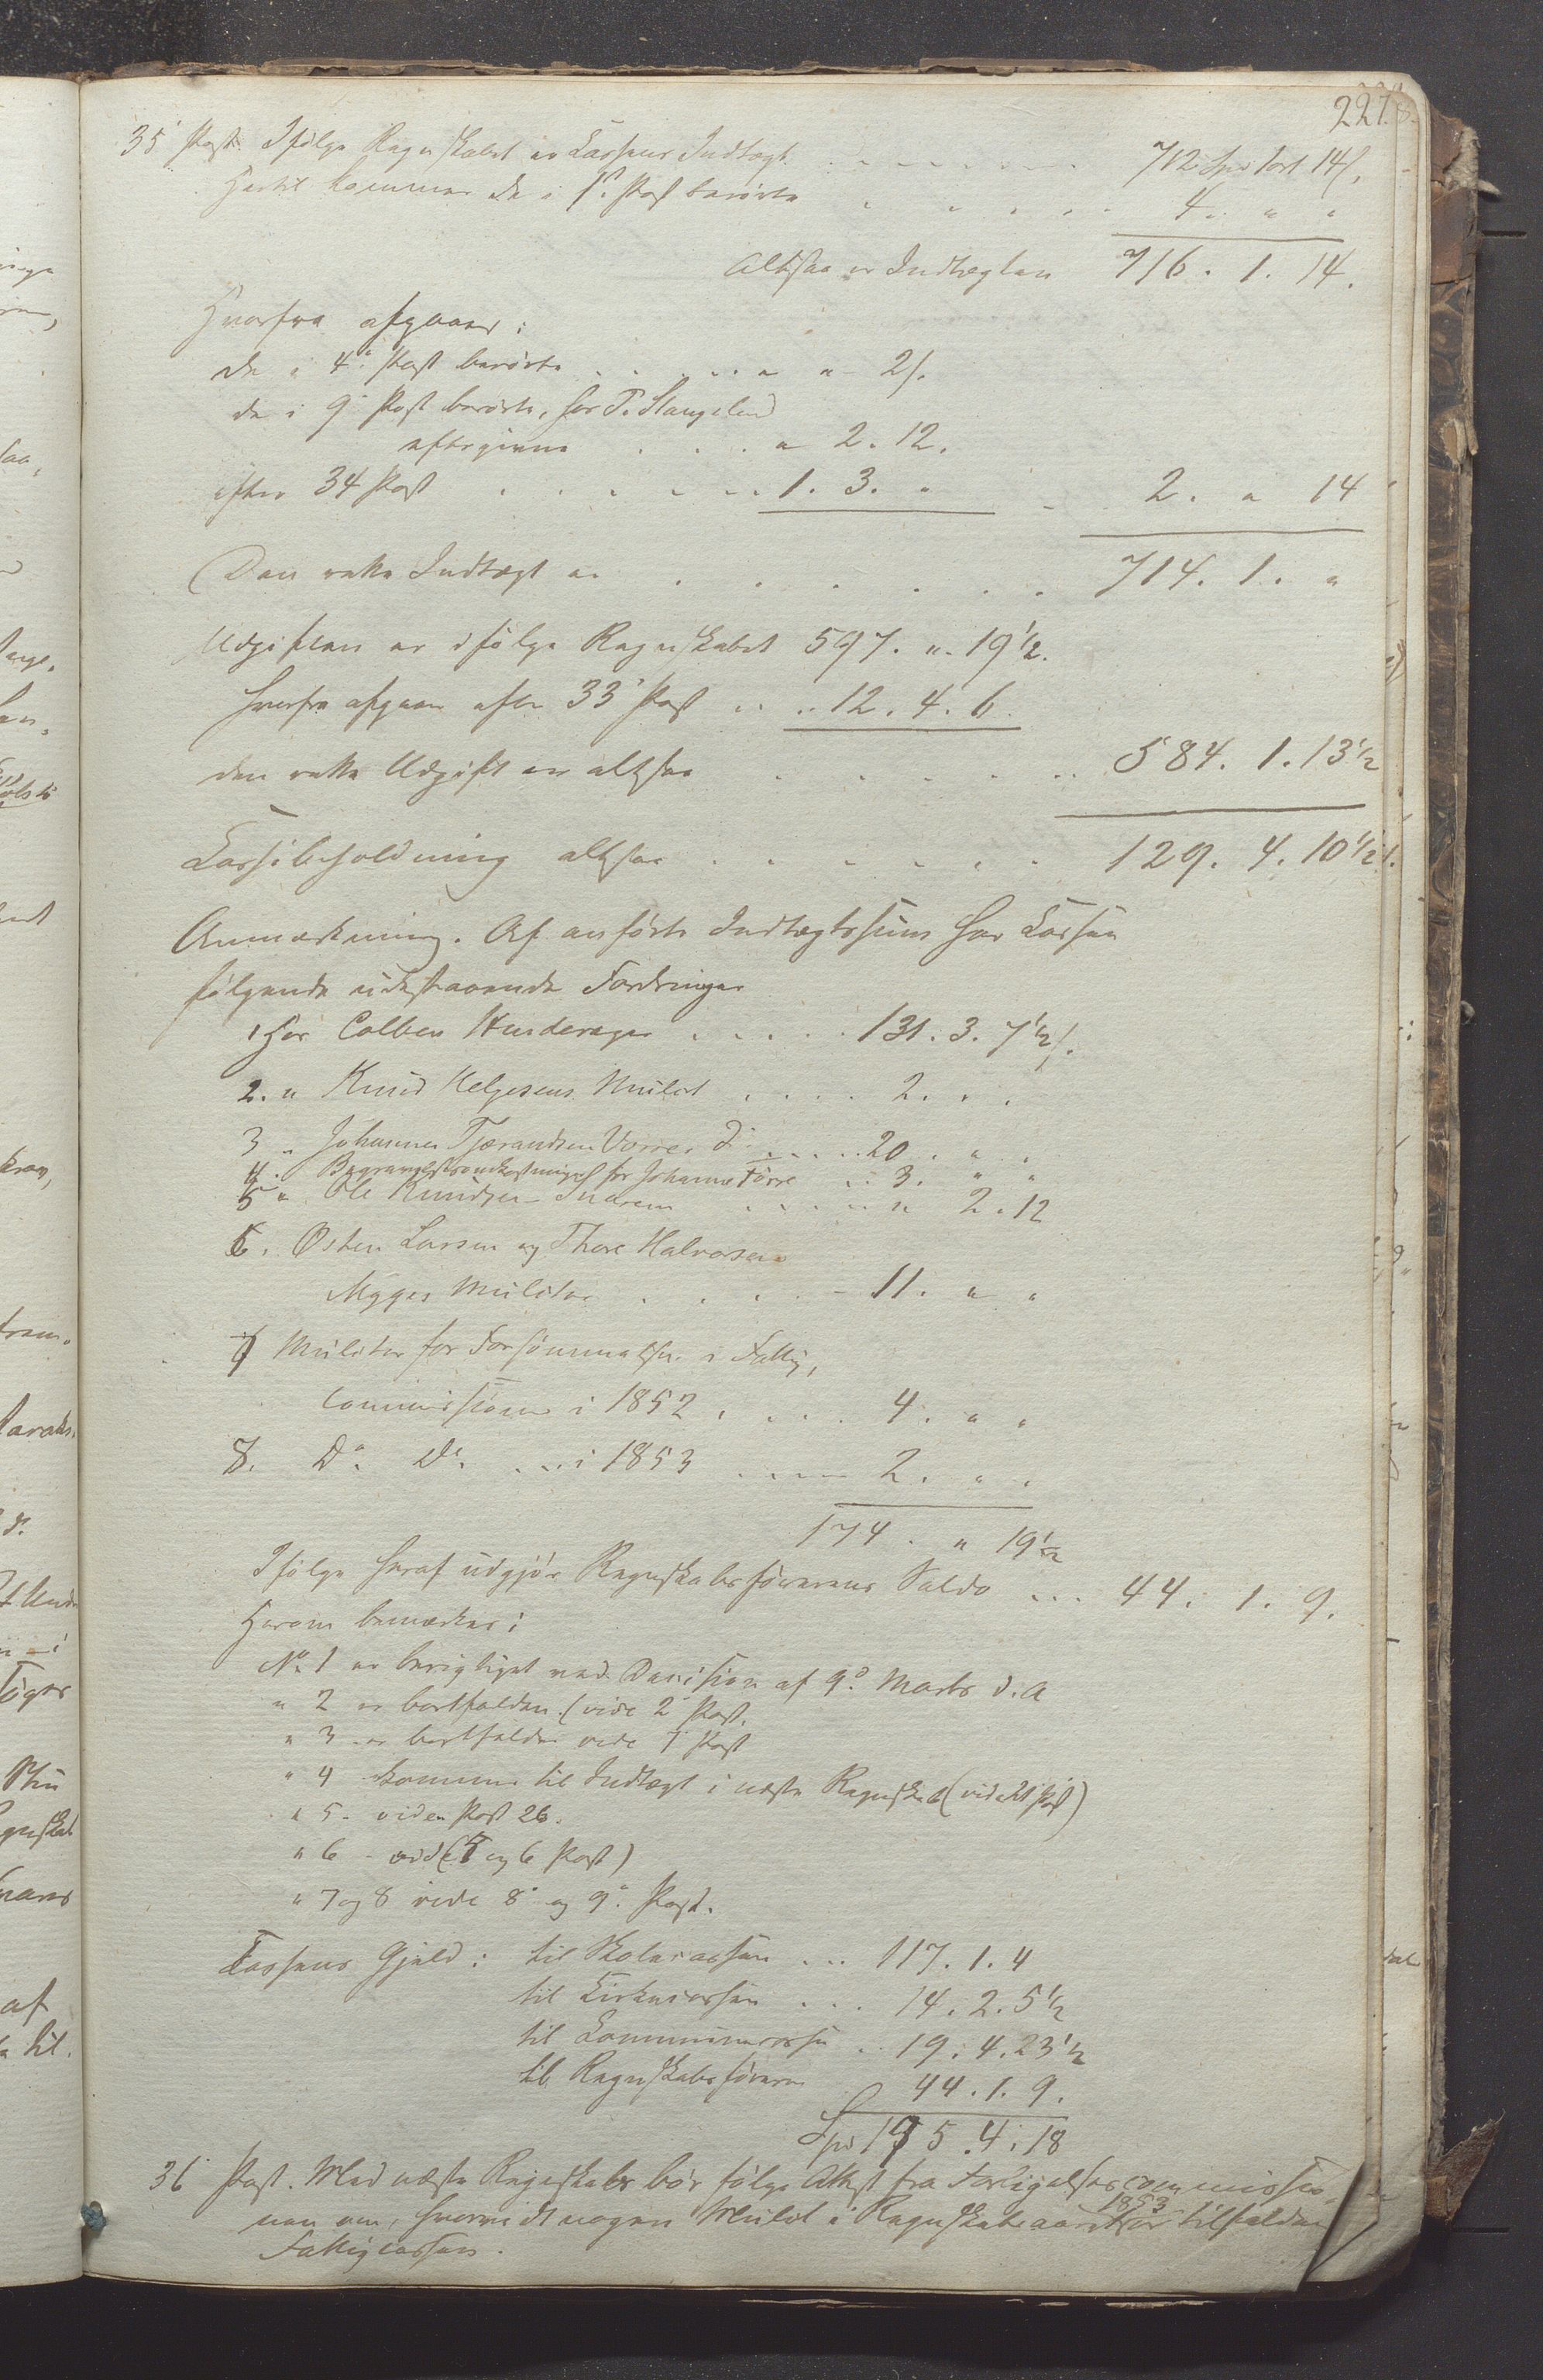 227.
35' Post. Ifølge Regnskabet er Cassens Indtægt . . . . . . . 712 Spd 1ort 14 s.
Hertil kommer de i 1ste Post berørte . . . . . . 4. " "
Altsaa er Indtægten 716. 1. 14.
Hvorfra afgaaer:
de i 4de Post berørte . . . . . " " 2 s.
de i 9' Post berørte, for T. Stangeland
eftergivne . . . . " 2. 12.
efter 34 Post . . . . . . 1. 3. " . . 2. " 14
Den rette Indtægt er . . . . . . . 714. 1. "
Udgiften er ifølge Regnskabet 597. ". 19 1/2.
hvorfra afgaaer efter 33' Post . . . . 12. 4. 6.
den rette Udgift er altsaa . . . . . . 584. 1. 13 1/2
Cassebeholdning altsaa . . . . . . . 129. 4. 10 1/2 s.
Anmærkning. Af anførte Indtægtssum har Cassen
følgende udestaaende Fordringer
1 hos Colben Hunderager . . . . . 131. 3. 7 1/2 s.
2. " Knud Helgesens Mulct . . . . 2. " "
3 " Johannes Tjærandsen Vorre. do . . . . . 20. " "
4. " Begravelsesomkostninger for Johannes Førre . . 3. " "
5 " Ole Knudsen . . . . . " 2. 12
6. Østen Larsen og Thore Halvorsen
Mulcter . . . . . 11. " "
7 Mulcter for Forsømmelser i Fattig,
commissionen i 1852 . . . . . 4. " "
8. Do Do. . . . i 1853 . . . . 2. " "
174. " 19 1/2
Ifølge heraf udgjør Regnskabsførerens Saldo . . . 44. 1. 9.
Herom bemærkes:
No 1 er berigtiget ved Decision af 9de Marts d. A
" 2 er bortfalden (vide 2' Post.
" 3 er bortfalden vide 7' Post
" 4 kommer til Indtægt i næste Regnskab (vide 21 Post)
" 5 - viden Post 26.
" 6 - vide (5 og 6 Post)
" 7 og 8 vide 8' og 9' Post.
Cassens Gjæld: til Skolecassen . . . 117. 1. 4
til Kirkecassen . . . 14. 2. 5 1/2
til Communecassen . . 19. 4. 23 1/2
til Regnskabsføreren 44. 1. 9.
Spd 195. 4. 18
36' Post. Med næste Regnskab bør følge Attest fra Forligelsescommissio-
nen om, hvorvidt nogen Mulct i Regnskabsaaret 1853 er tilfalden
Fattigcassen.